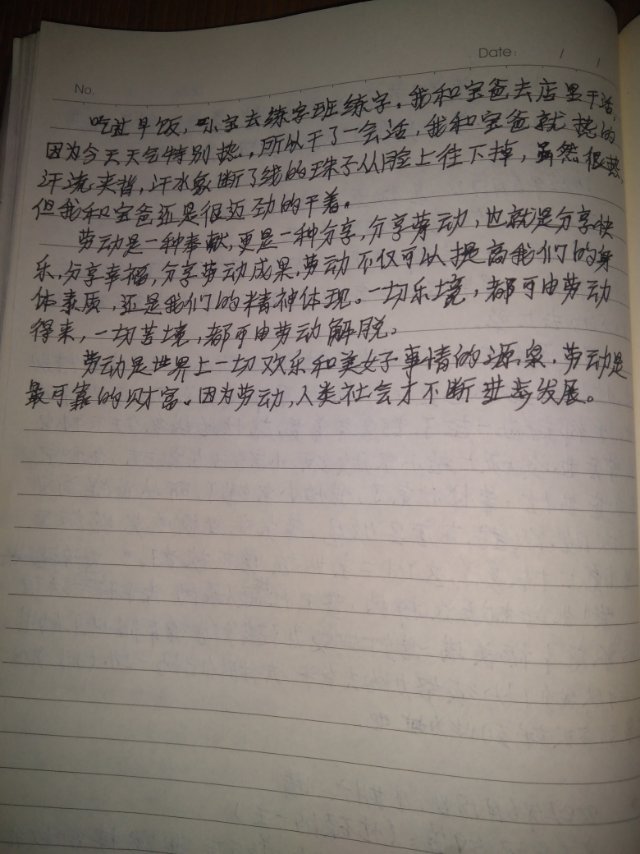 Date: / /
No.
吃过早饭，小宝去练字班练字。我和宝爸去店里干活，
因为今天天气特别热，所以干了一会活，我和宝爸就热的
汗流夹背，汗水象断了线的珠子从脸上往下掉，虽然很热，
但我和宝爸还是很起劲的干着。
劳动是一种奉献，更是一种分享，分享劳动，也就是分享快
乐，分享幸福，分享劳动成果，劳动不仅可以提高我们的身
体素质，还是我们的精神体现。一切乐境，都可由劳动
得来，一切苦境，都可由劳动解脱。
劳动是世界上一切欢乐和美好事情的源泉，劳动是
最可靠的财富。因为劳动，人类社会才不断进步发展。